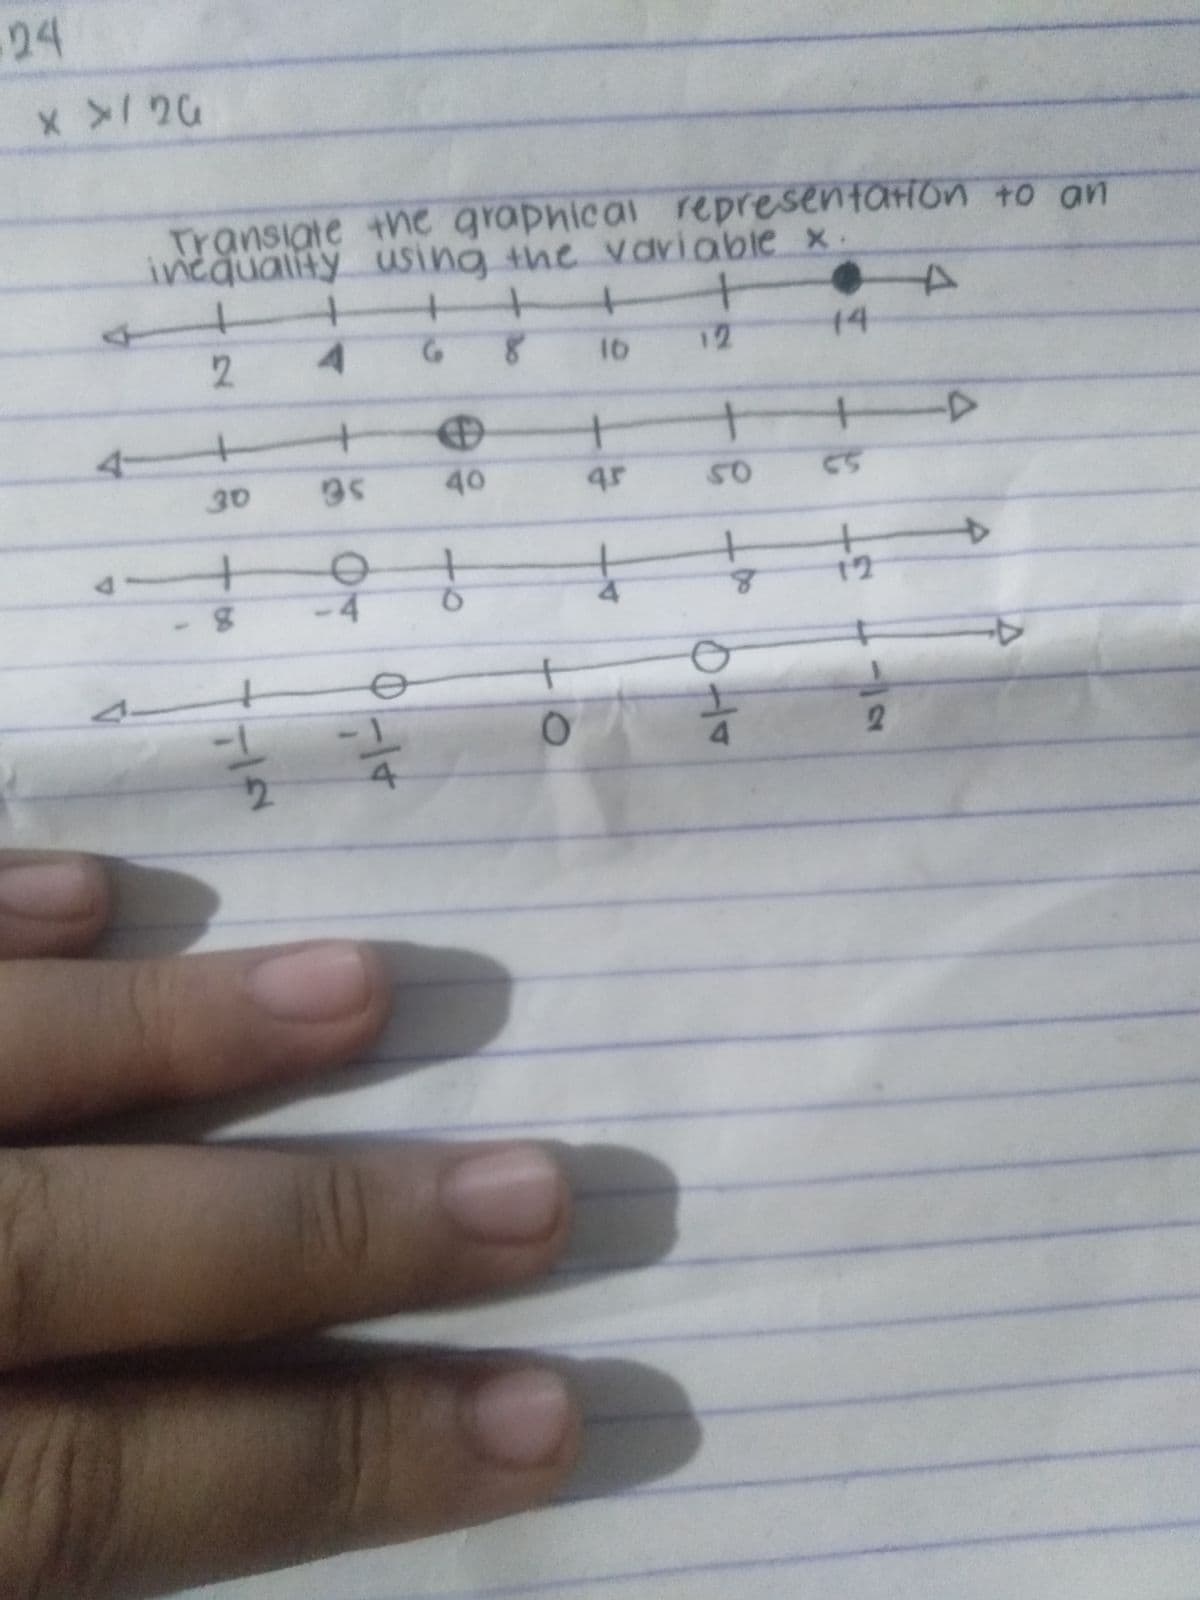 24
x > 126
Translate the graphical representation to an
inequality using the variable x.
2 4 6 8 10 12 14
30 35 40 45 50 55
-8 -4 0 4 8 12
-1/2 -1/4 0 1/4 1/2